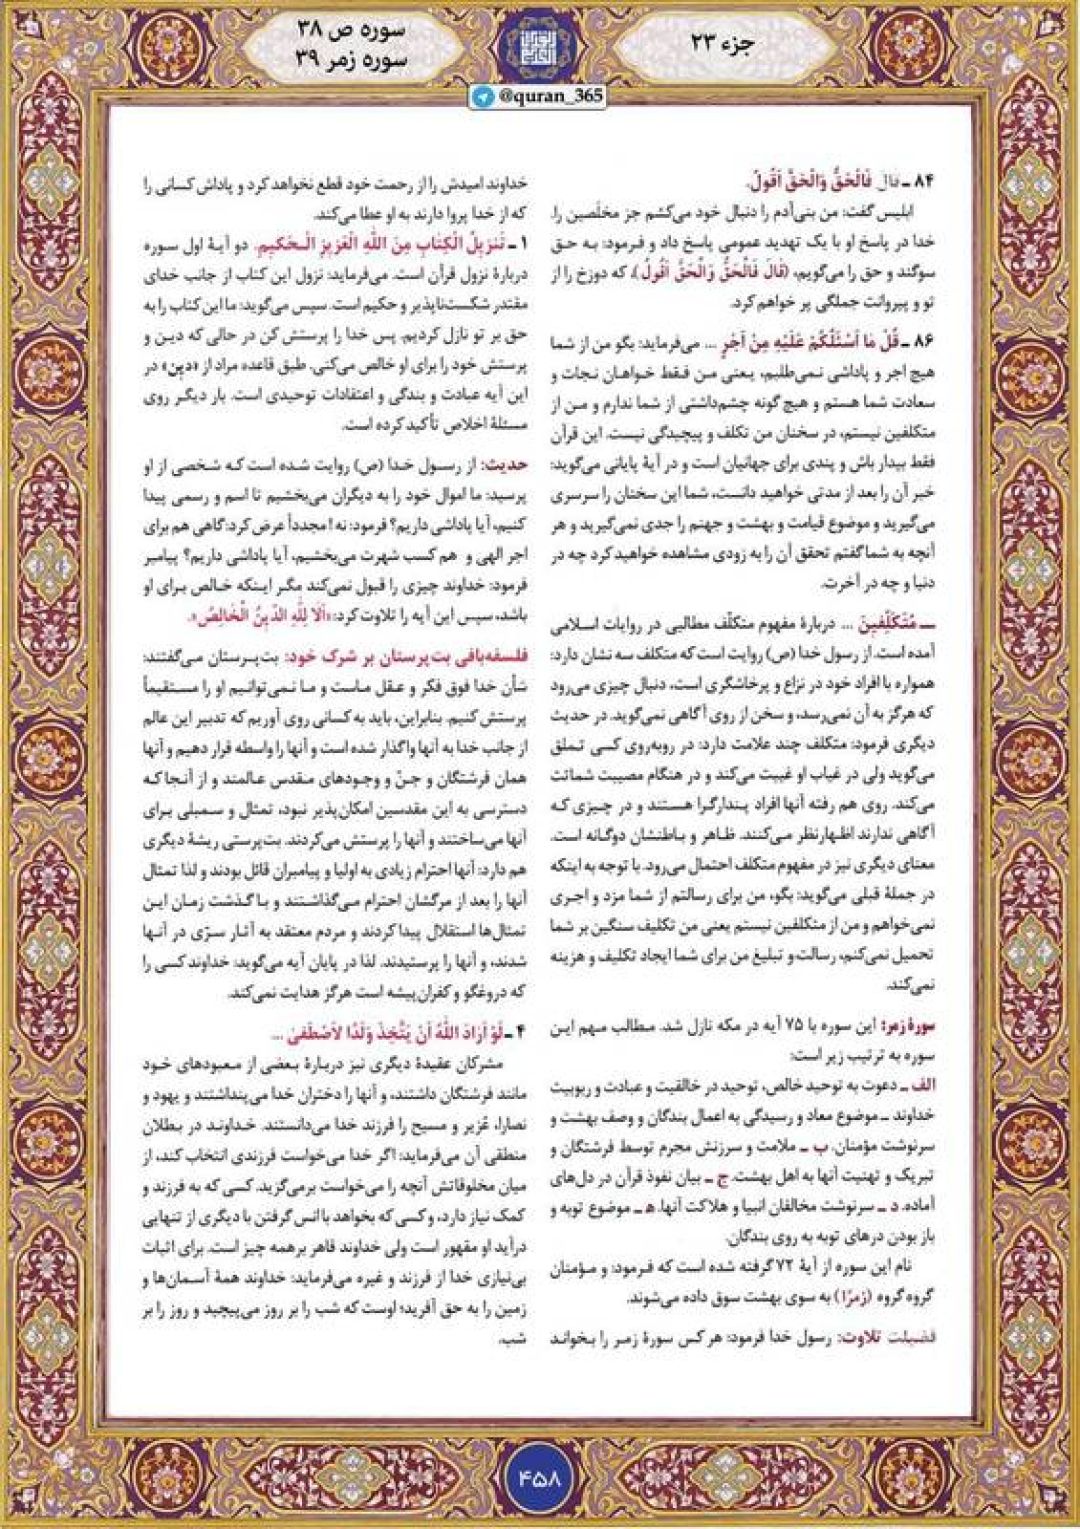 سوره ص ۳۸
سوره زمر ۳۹
جزء ۲۳
@quran_365
۸۴ ـ قالَ فَالْحَقُّ وَالْحَقَّ اَقُولُ.
ابلیس گفت: من بنی‌آدم را دنبال خود می‌کشم جز مخلَصین را.
خدا در پاسخ او با یک تهدید عمومی پاسخ داد و فرمود: به حق
سوگند و حق را می‌گویم، (قالَ فَالْحَقُّ وَالْحَقَّ اَقُولُ)، که دوزخ را از
تو و پیروانت جملگی پر خواهم کرد.
۸۶ ـ قُلْ مَا اَسْئَلُکُمْ عَلَیْهِ مِنْ اَجْرٍ ... می‌فرماید: بگو من از شما
هیچ اجر و پاداشی نمی‌طلبم، یعنی من فقط خواهان نجات و
سعادت شما هستم و هیچ گونه چشم‌داشتی از شما ندارم و من از
متکلفین نیستم، در سخنان من تکلف و پیچیدگی نیست. این قرآن
فقط بیدار باش و پندی برای جهانیان است و در آیهٔ پایانی می‌گوید:
خبر آن را بعد از مدتی خواهید دانست، شما این سخنان را سرسری
می‌گیرید و موضوع قیامت و بهشت و جهنم را جدی نمی‌گیرید و هر
آنچه به شما گفتم تحقق آن را به زودی مشاهده خواهید کرد چه در
دنیا و چه در آخرت.
ـ مُتَکَلِّفینَ ... دربارهٔ مفهوم متکلّف مطالبی در روایات اسلامی
آمده است. از رسول خدا (ص) روایت است که متکلف سه نشان دارد:
همواره با افراد خود در نزاع و پرخاشگری است، دنبال چیزی می‌رود
که هرگز به آن نمی‌رسد، و سخن از روی آگاهی نمی‌گوید. در حدیث
دیگری فرمود: متکلف چند علامت دارد: در روبه‌روی کسی تملق
می‌گوید ولی در غیاب او غیبت می‌کند و در هنگام مصیبت شماتت
می‌کند. روی هم رفته آنها افراد پندارگرا هستند و در چیزی که
آگاهی ندارند اظهارنظر می‌کنند. ظاهر و باطنشان دوگانه است.
معنای دیگری نیز در مفهوم متکلف احتمال می‌رود. با توجه به اینکه
در جملهٔ قبلی می‌گوید: بگو، من برای رسالتم از شما مزد و اجری
نمی‌خواهم و من از متکلفین نیستم یعنی من تکلیف سنگین بر شما
تحمیل نمی‌کنم، رسالت و تبلیغ من برای شما ایجاد تکلیف و هزینه
نمی‌کند.
سورهٔ زمر: این سوره با ۷۵ آیه در مکه نازل شد. مطالب مهم این
سوره به ترتیب زیر است:
الف ـ دعوت به توحید خالص، توحید در خالقیت و عبادت و ربوبیت
خداوند ـ موضوع معاد و رسیدگی به اعمال بندگان و وصف بهشت و
سرنوشت مؤمنان. ب ـ ملامت و سرزنش مجرم توسط فرشتگان و
تبریک و تهنیت آنها به اهل بهشت. ج ـ بیان نفوذ قرآن در دل‌های
آماده. د ـ سرنوشت مخالفان انبیا و هلاکت آنها. هـ ـ موضوع توبه و
باز بودن درهای توبه به روی بندگان.
نام این سوره از آیهٔ ۷۲ گرفته شده است که فرمود: و مؤمنان
گروه گروه (زُمَرًا) به سوی بهشت سوق داده می‌شوند.
فضیلت تلاوت: رسول خدا فرمود: هر کس سورهٔ زمر را بخواند
خداوند امیدش را از رحمت خود قطع نخواهد کرد و پاداش کسانی را
که از خدا پروا دارند به او عطا می‌کند.
۱ ـ تَنْزیلُ الْکِتابِ مِنَ اللهِ الْعَزیزِ الْحَکیمِ. دو آیهٔ اول سوره
دربارهٔ نزول قرآن است. می‌فرماید: نزول این کتاب از جانب خدای
مقتدر شکست‌ناپذیر و حکیم است. سپس می‌گوید: ما این کتاب را به
حق بر تو نازل کردیم. پس خدا را پرستش کن در حالی که دین و
پرستش خود را برای او خالص می‌کنی. طبق قاعده مراد از «دین» در
این آیه عبادت و بندگی و اعتقادات توحیدی است. بار دیگر روی
مسئلهٔ اخلاص تأکید کرده است.
حدیث: از رسول خدا (ص) روایت شده است که شخصی از او
پرسید: ما اموال خود را به دیگران می‌بخشیم تا اسم و رسمی پیدا
کنیم، آیا پاداشی داریم؟ فرمود: نه! مجدداً عرض کرد: گاهی هم برای
اجر الهی و هم کسب شهرت می‌بخشیم، آیا پاداشی داریم؟ پیامبر
فرمود: خداوند چیزی را قبول نمی‌کند مگر اینکه خالص برای او
باشد، سپس این آیه را تلاوت کرد: «اَلا لِلّهِ الدّینُ الْخالِصُ».
فلسفه‌بافی بت‌پرستان بر شرک خود: بت‌پرستان می‌گفتند:
شأن خدا فوق فکر و عقل ماست و ما نمی‌توانیم او را مستقیماً
پرستش کنیم. بنابراین، باید به کسانی روی آوریم که تدبیر این عالم
از جانب خدا به آنها واگذار شده است و آنها را واسطه قرار دهیم و آنها
همان فرشتگان و جنّ و وجودهای مقدس عالمند و از آنجا که
دسترسی به این مقدسین امکان‌پذیر نبود، تمثال و سمبلی برای
آنها می‌ساختند و آنها را پرستش می‌کردند. بت‌پرستی ریشهٔ دیگری
هم دارد: آنها احترام زیادی به اولیا و پیامبران قائل بودند و لذا تمثال
آنها را بعد از مرگشان احترام می‌گذاشتند و با گذشت زمان این
تمثال‌ها استقلال پیدا کردند و مردم معتقد به آثار سرّی در آنها
شدند، و آنها را پرستیدند. لذا در پایان آیه می‌گوید: خداوند کسی را
که دروغگو و کفران‌پیشه است هرگز هدایت نمی‌کند.
۴ ـ لَوْ اَرادَ اللهُ اَنْ یَتَّخِذَ وَلَدًا لَاصْطَفیٰ ...
مشرکان عقیدهٔ دیگری نیز دربارهٔ بعضی از معبودهای خود
مانند فرشتگان داشتند، و آنها را دختران خدا می‌پنداشتند و یهود و
نصارا، عُزیر و مسیح را فرزند خدا می‌دانستند. خداوند در بطلان
منطقی آن می‌فرماید: اگر خدا می‌خواست فرزندی انتخاب کند، از
میان مخلوقاتش آنچه را می‌خواست برمی‌گزید. کسی که به فرزند و
کمک نیاز دارد، و کسی که بخواهد با انس گرفتن با دیگری از تنهایی
درآید او مقهور است ولی خداوند قاهر برهمه چیز است. برای اثبات
بی‌نیازی خدا از فرزند و غیره می‌فرماید: خداوند همهٔ آسمان‌ها و
زمین را به حق آفرید؛ اوست که شب را بر روز می‌پیچید و روز را بر
شب.
۴۵۸